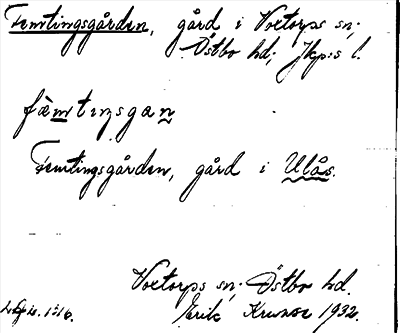 Femtingsgården, gård i Voetorps sn;
Östbo hd; Jkp:s l.
fèmtıŋsgan
Femtingsgården, gård i Ulås.
Voetorps sn; Östbo hd.
Erik 1932.